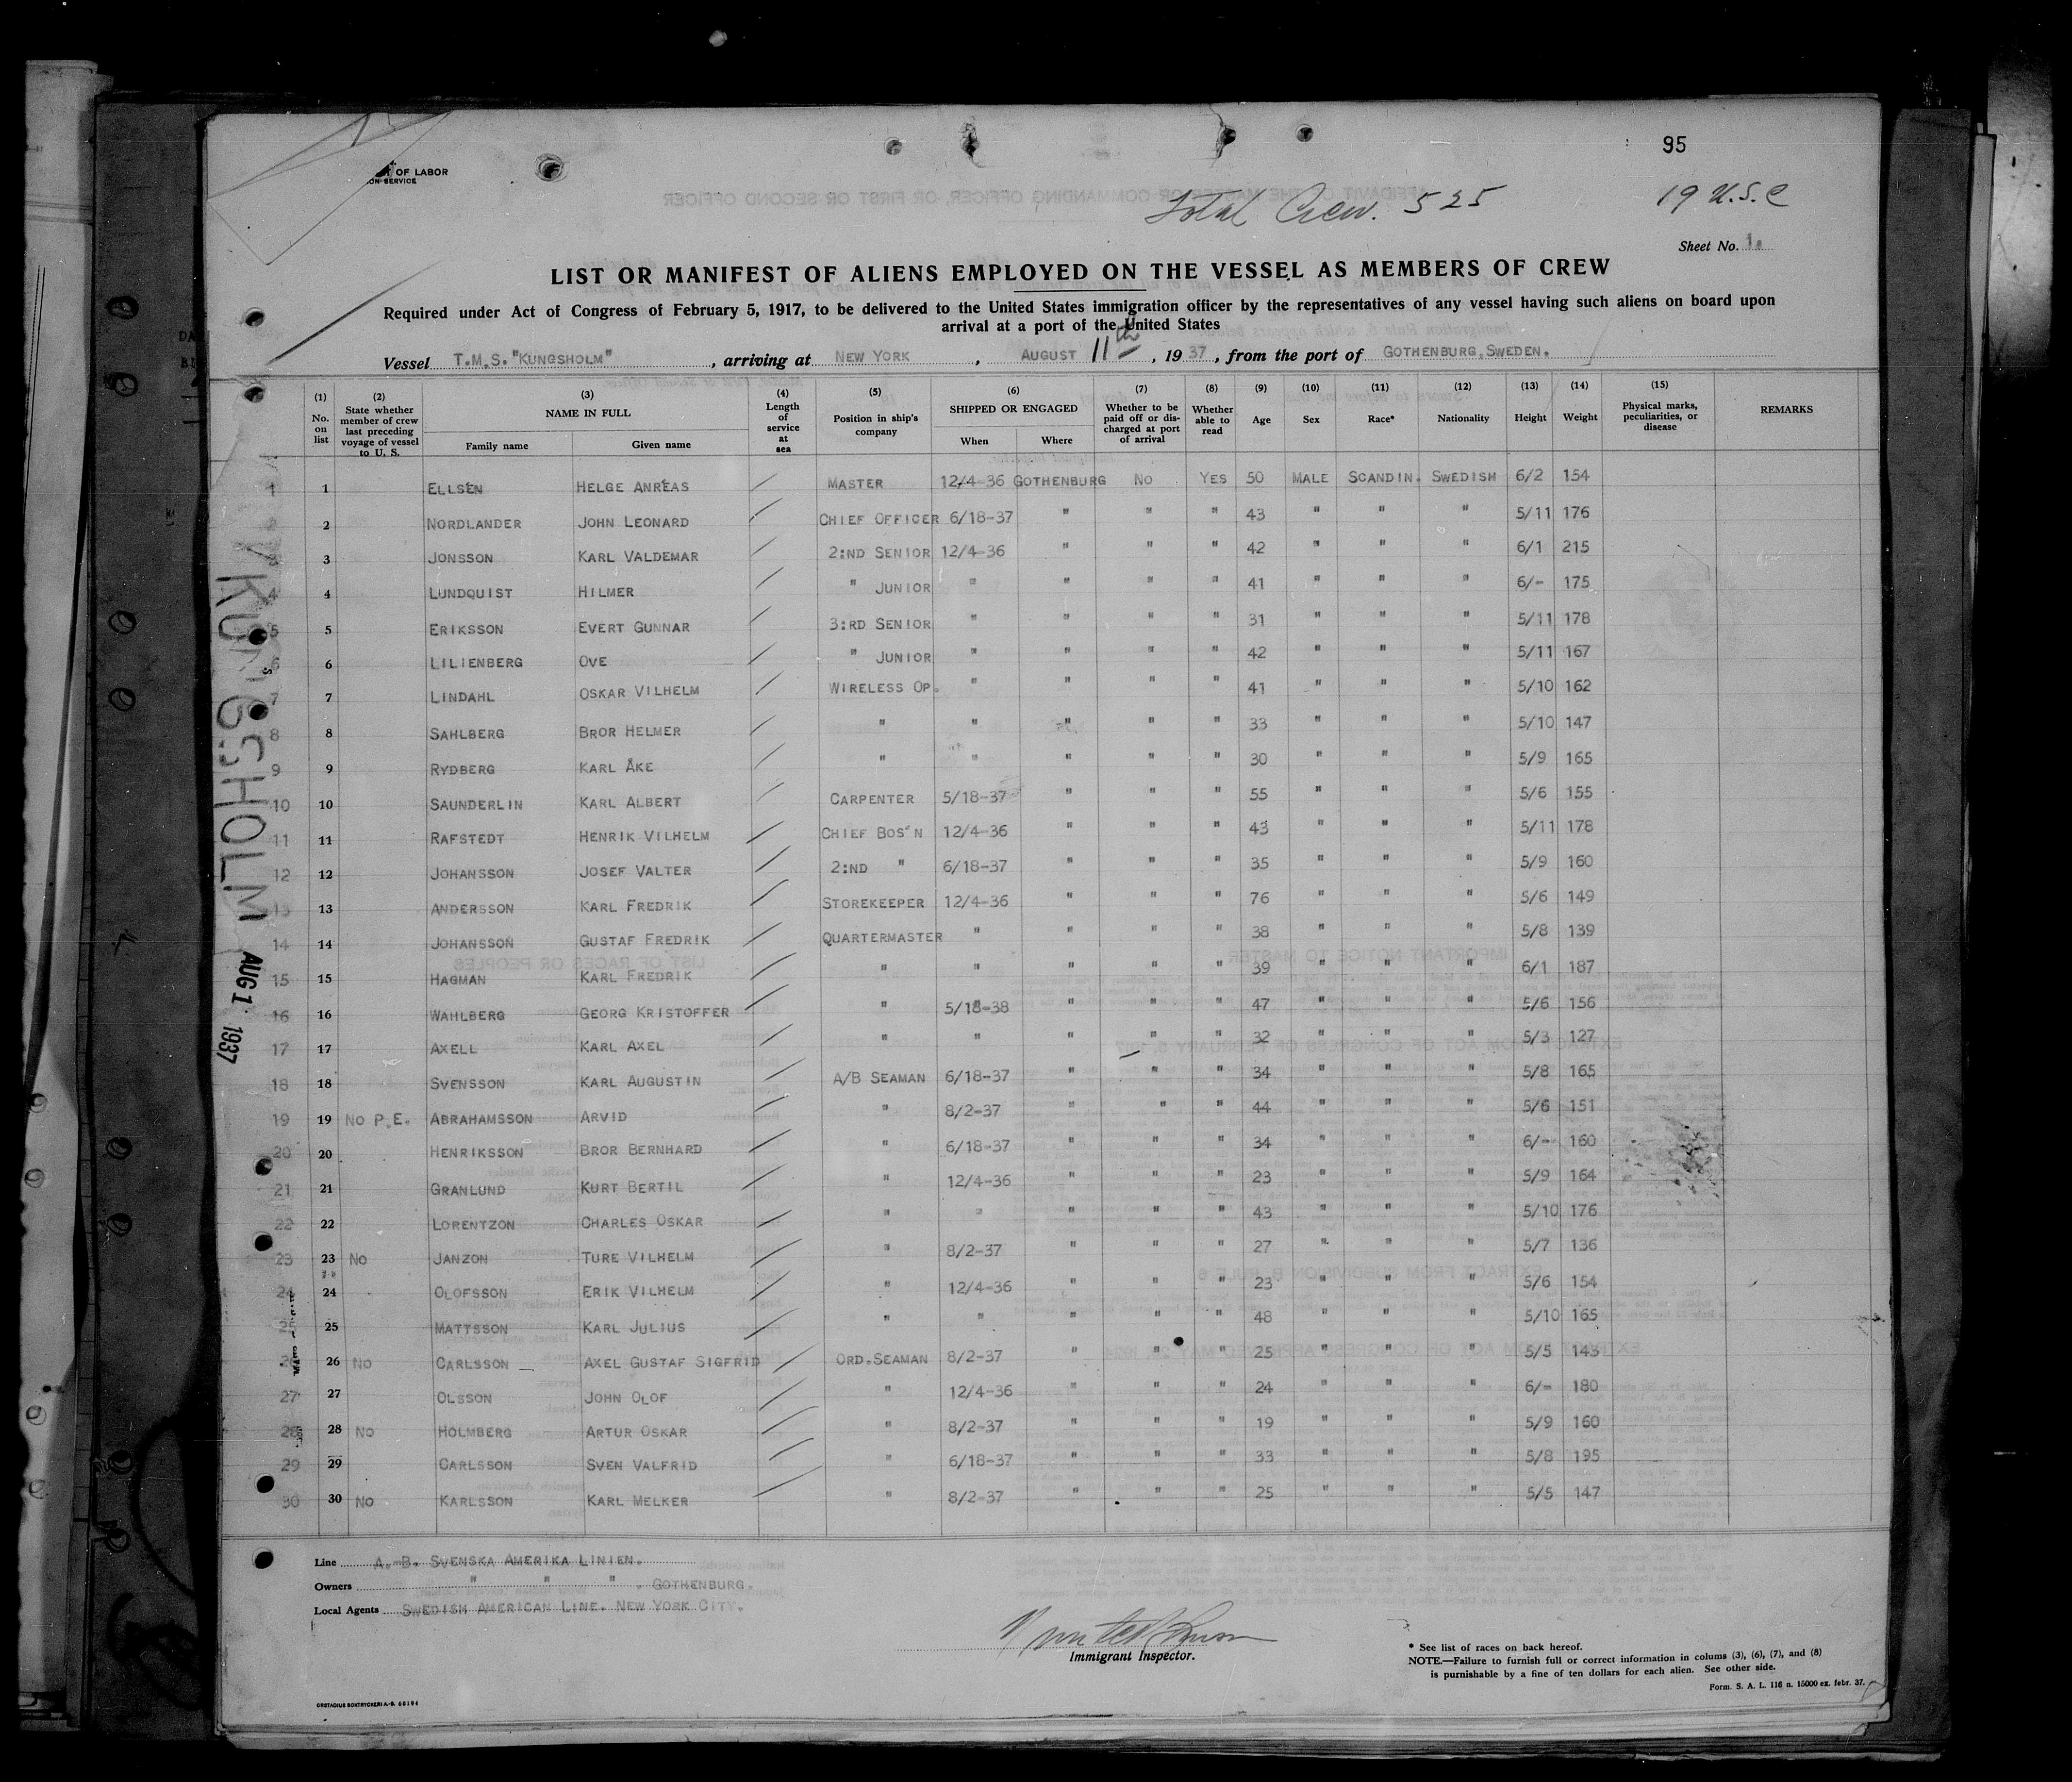 95
OF LABOR
ON SERVICE
Total Crew. 525
19 U.S.C
Sheet No. 1.
LIST OR MANIFEST OF ALIENS EMPLOYED ON THE VESSEL AS MEMBERS OF CREW
Required under Act of Congress of February 5, 1917, to be delivered to the United States immigration officer by the representatives of any vessel having such aliens on board upon
arrival at a port of the United States
Vessel T.M.S. "KUNGSHOLM", arriving at NEW YORK, AUGUST 11th, 1937, from the port of GOTHENBURG, SWEDEN.
(1) No. on list (2) State whether member of crew last preceding voyage of vessel to U. S. (3) NAME IN FULL Family name Given name (4) Length of service at sea (5) Position in ship's company (6) SHIPPED OR ENGAGED When Where (7) Whether to be paid off or discharged at port of arrival (8) Whether able to read (9) Age (10) Sex (11) Race* (12) Nationality (13) Height (14) Weight (15) Physical marks, peculiarities, or disease REMARKS
1 1 ELLSEN HELGE ANREAS / MASTER 12/4-36 GOTHENBURG NO YES 50 MALE SCANDIN. SWEDISH 6/2 154
2 2 NORDLANDER JOHN LEONARD / CHIEF OFFICER 6/18-37 " " " 43 " " " 5/11 176
3 3 JONSSON KARL VALDEMAR / 2:ND SENIOR 12/4-36 " " " 42 " " " 6/1 215
4 4 LUNDQUIST HILMER / " JUNIOR " " " " 41 " " " 6/- 175
5 5 ERIKSSON EVERT GUNNAR / 3:RD SENIOR " " " " 31 " " " 5/11 178
6 6 LILIENBERG OVE / " JUNIOR " " " " 42 " " " 5/11 167
7 7 LINDAHL OSKAR VILHELM / WIRELESS OP. " " " " 41 " " " 5/10 162
8 8 SAHLBERG BROR HELMER / " " " " " 33 " " " 5/10 147
9 9 RYDBERG KARL ÅKE / " " " " " 30 " " " 5/9 165
10 10 SAUNDERLIN KARL ALBERT / CARPENTER 5/18-37 " " " 55 " " " 5/6 155
11 11 RAFSTEDT HENRIK VILHELM / CHIEF BOS'N 12/4-36 " " " 43 " " " 5/11 178
12 12 JOHANSSON JOSEF VALTER / 2:ND " 6/18-37 " " " 35 " " " 5/9 160
13 13 ANDERSSON KARL FREDRIK / STOREKEEPER 12/4-36 " " " 76 " " " 5/6 149
14 14 JOHANSSON GUSTAF FREDRIK / QUARTERMASTER " " " " 38 " " " 5/8 139
15 15 HAGMAN KARL FREDRIK / " " " " " 39 " " " 6/1 187
16 16 WAHLBERG GEORG KRISTOFFER / " 5/18-38 " " " 47 " " " 5/6 156
17 17 AXELL KARL AXEL / " " " " " 32 " " " 5/3 127
18 18 SVENSSON KARL AUGUSTIN / A/B SEAMAN 6/18-37 " " " 34 " " " 5/8 165
19 19 NO P.E. ABRAHAMSSON ARVID / " 8/2-37 " " " 44 " " " 5/6 151
20 20 HENRIKSSON BROR BERNHARD / " 6/18-37 " " " 34 " " " 6/- 160
21 21 GRANLUND KURT BERTIL / " 12/4-36 " " " 23 " " " 5/9 164
22 22 LORENTZON CHARLES OSKAR / " " " " " 43 " " " 5/10 176
23 23 NO JANZON TURE VILHELM / " 8/2-37 " " " 27 " " " 5/7 136
24 24 OLOFSSON ERIK VILHELM / " 12/4-36 " " " 23 " " " 5/6 154
25 25 MATTSSON KARL JULIUS / " " " " " 48 " " " 5/10 165
26 26 NO CARLSSON AXEL GUSTAF SIGFRID / ORD.SEAMAN 8/2-37 " " " 25 " " " 5/5 143
27 27 OLSSON JOHN OLOF / " 12/4-36 " " " 24 " " " 6/- 180
28 28 NO HOLMBERG ARTUR OSKAR / " 8/2-37 " " " 19 " " " 5/9 160
29 29 CARLSSON SVEN VALFRID / " 6/18-37 " " " 33 " " " 5/8 195
30 30 NO KARLSSON KARL MELKER / " 8/2-37 " " " 25 " " " 5/5 147
KUNGSHOLM
AUG 1 1937
Line A.-B. SVENSKA AMERIKA LINIEN.
Owners " " " . GOTHENBURG.
Local Agents SWEDISH AMERICAN LINE. NEW YORK CITY.
Immigrant Inspector.
* See list of races on back hereof.
NOTE.—Failure to furnish full or correct information in colums (3), (6), (7), and (8)
is punishable by a fine of ten dollars for each alien. See other side.
Form. S. A. L. 116 n. 15000 ex. febr. 37.